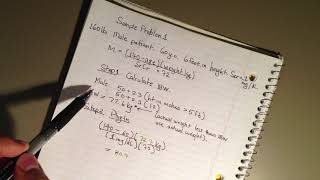 Sample Problem 1
160lb Male patient. 60 y.o. 6 feet in height. Scr =
M = (140-age)(weight kg)
Scr x 72
Step 1 Calculate IBW.
Male 50 + 2.3 (ht in inches > 5ft)
50 + 2.3 (12)
= 77.6 kg (actual weight less than IBW
use actual weight).
Step 2 Plugin
(140-60)(72.7 kg)
(1 mg/dL)(72)
= 80.7